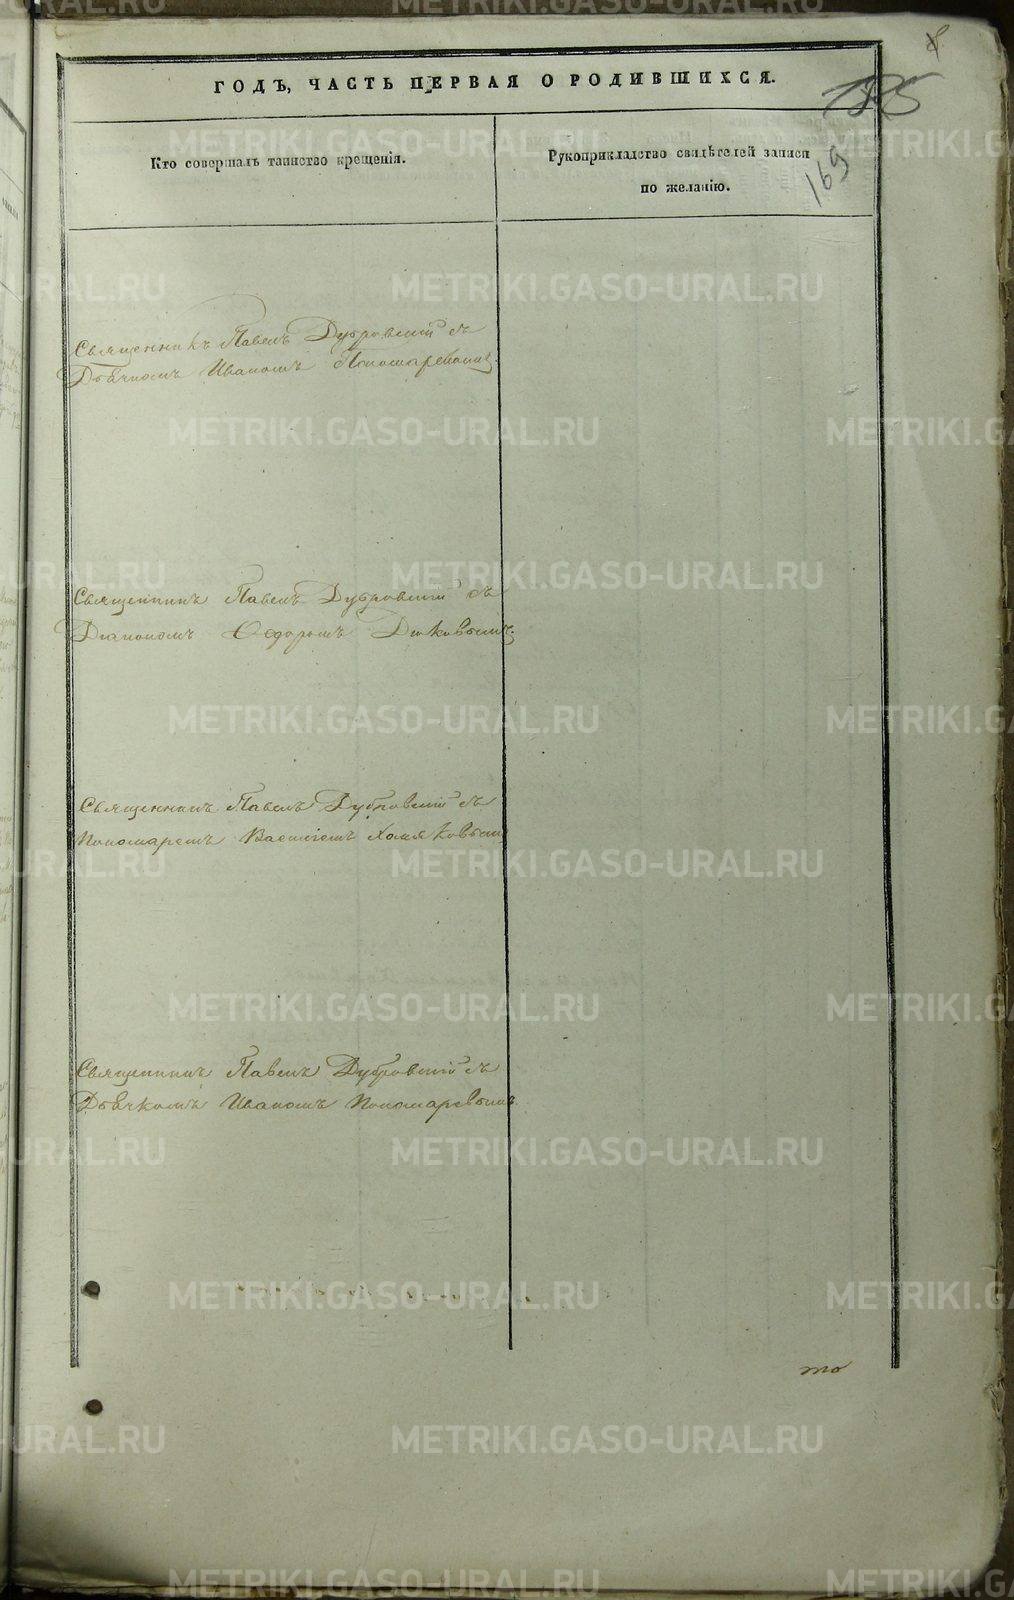 ГОДЪ, ЧАСТЬ ПЕРВАЯ О РОДИВШИХСЯ.
169
Кто совершалъ таинство крещенія.
Рукоприкладство свидѣтелей записи
по желанію.
Священникъ Павелъ Дубровскій съ
Дьячкомъ Иваномъ Пономаревымъ
Священникъ Павелъ Дубровскій съ
Діакономъ Ѳедоромъ
Священникъ Павелъ Дубровскій съ
Пономаремъ Василіемъ Хомяковымъ
Священникъ Павелъ Дубровскій съ
Дьячкомъ Иваномъ Пономаревымъ
METRIKI.GASO-URAL.RU